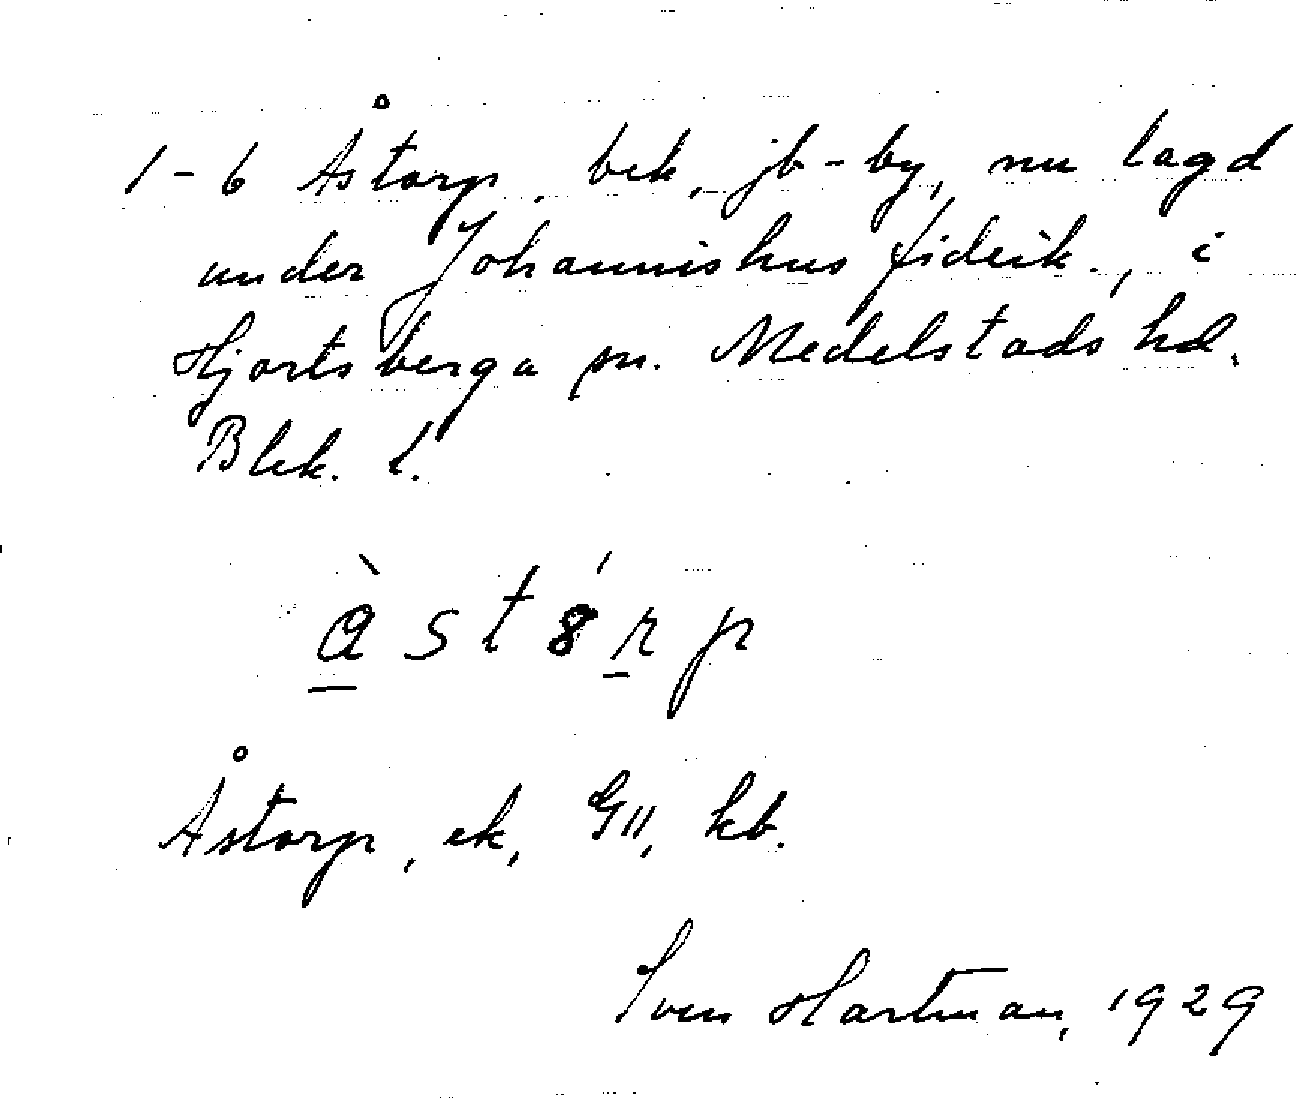 1-6 Åstorp, bek, jb-by, nu lagd
under Johannishus fideik., i
Hjortsberga sn. Medelstads hd.
Blek. l.
Åstorp, ek, GII, kb.
Sven Hartman, 1929